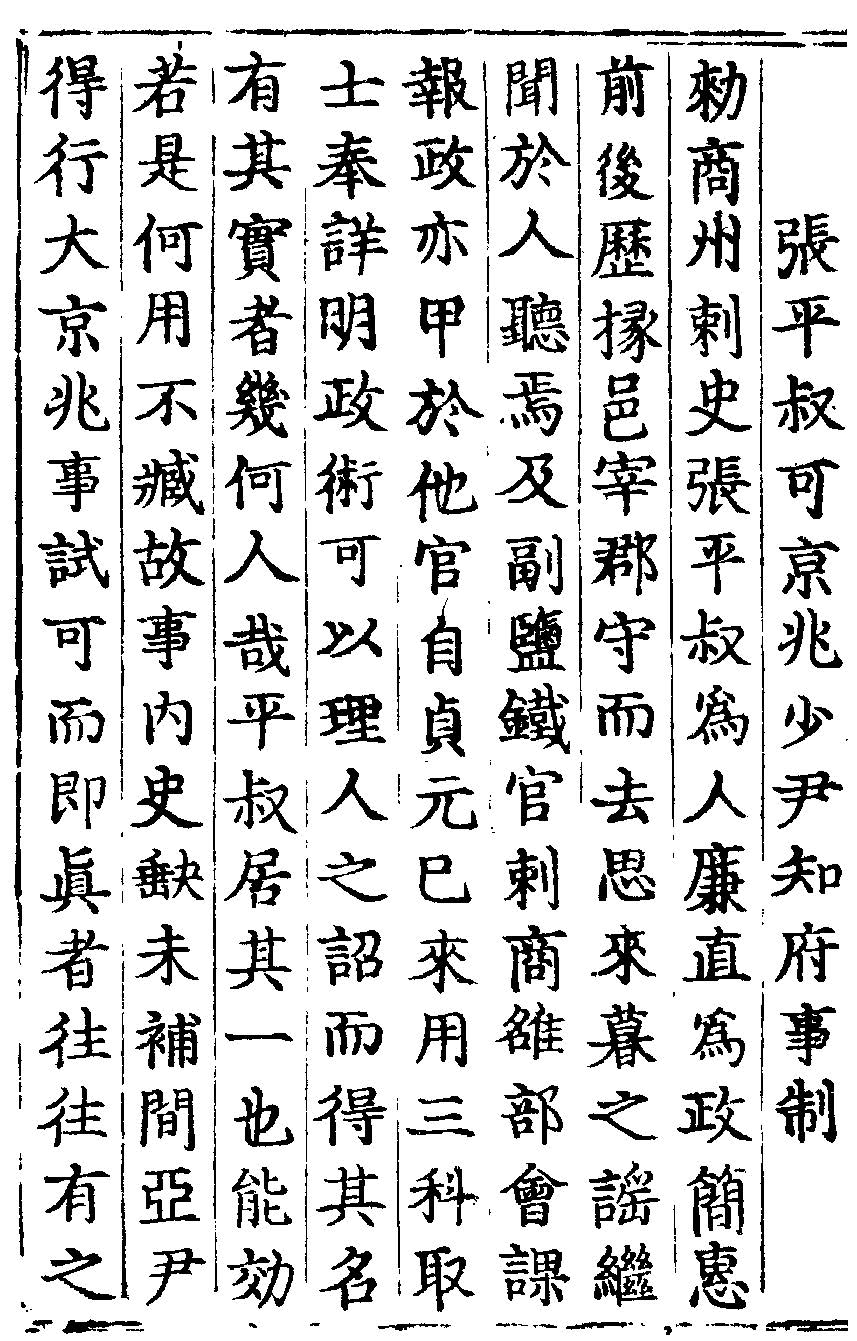 張平叔可京兆少尹知府事制
勑商州刺史張平叔爲人廉直爲政簡惠
前後歷掾邑宰郡守而去思來暮之謡繼
聞於人聽焉及副鹽鐵官刺商雒部會課
報政亦甲於他官自貞元已來用三科取
士奉詳明政術可以理人之詔而得其名
有其實者幾何人哉平叔居其一也能効
若是何用不臧故事内史缺未補間亞尹
得行大京兆事試可而即眞者往往有之